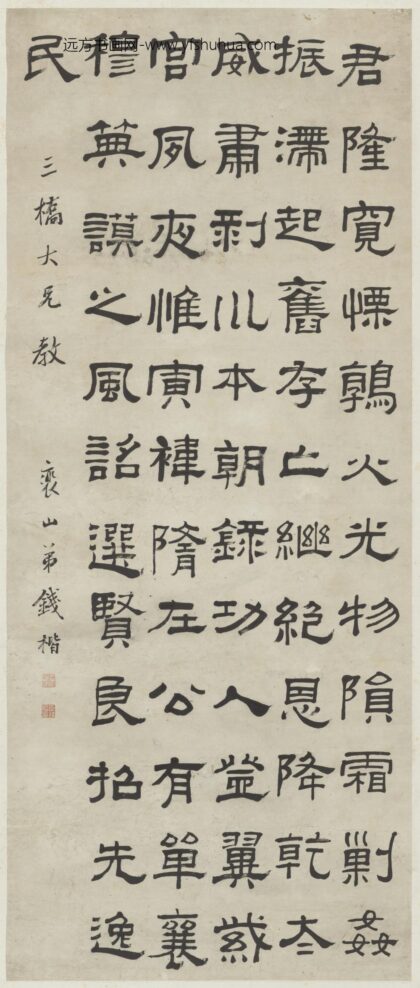 君隆寬慄鶉火光物隕霜剿姦
振滯起舊存亡繼絕恩降乾太
威肅剥川本朝錄功入登翼紫
宮夙夜惟寅褘隋在公有單襄
穆英謨之風詔選賢良招先逸
民
三橋大兄教
裴山弟錢楷
远方书画网-www.yfshuhua.com